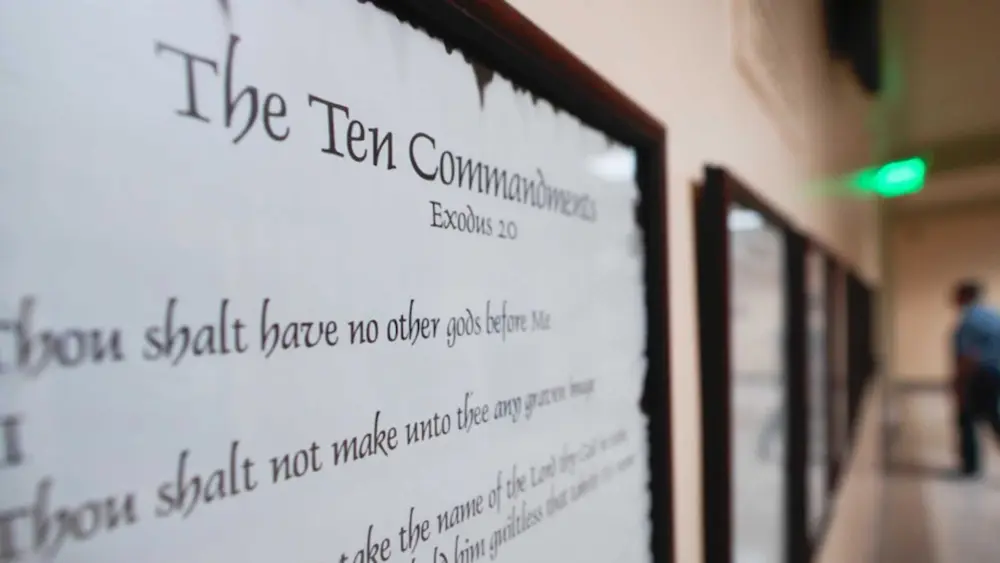 The Ten Commandments
Exodus 20
Thou shalt have no other gods before Me
II
Thou shalt not make unto thee any graven image
take the name of the Lord thy God in
him guiltless that